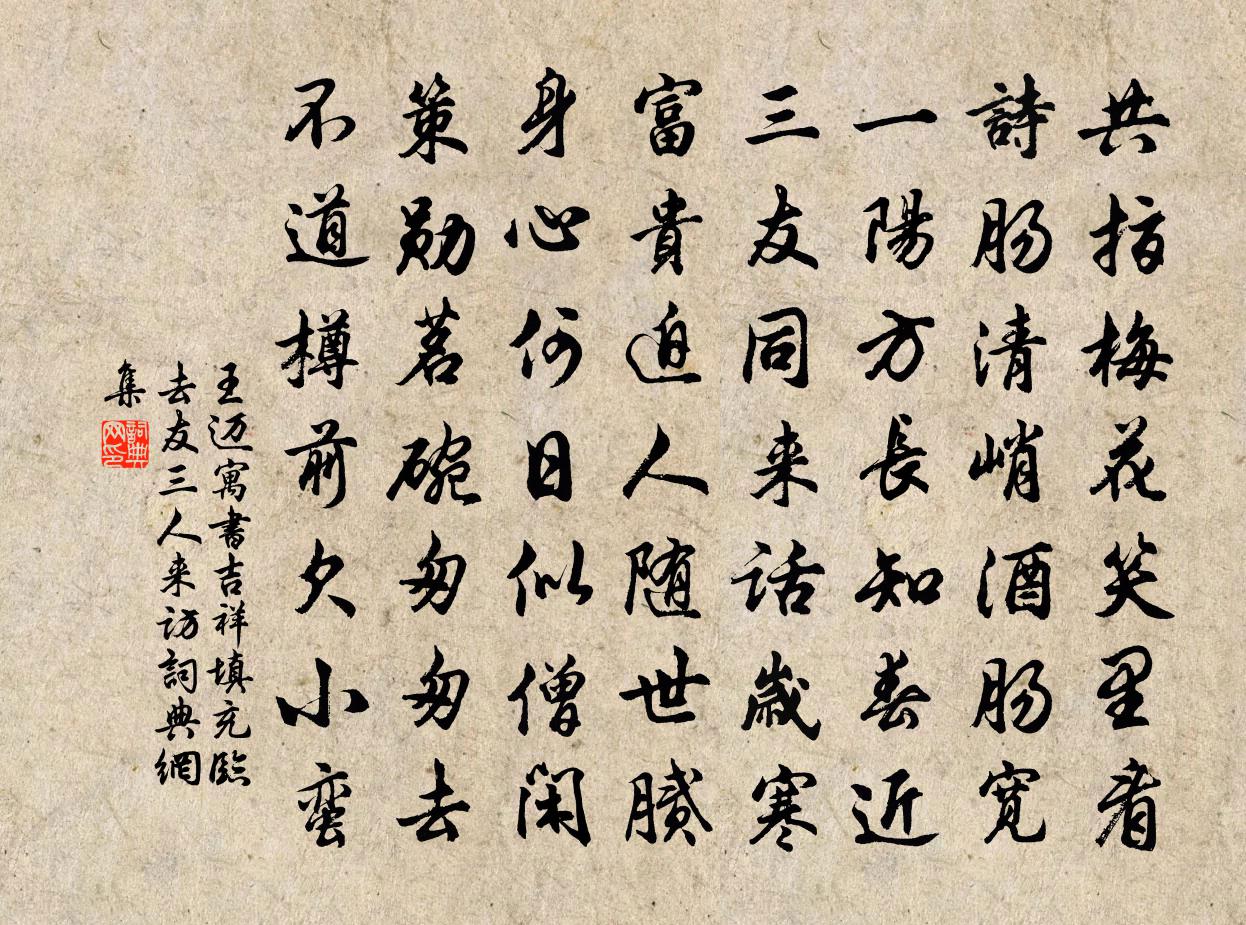 共指梅花笑里看
詩肠清峭酒肠宽
一陽方長知春近
三友同来話歲寒
富貴迫人随世膩
身心何日似僧閑
策勋茗碗匆匆去
不道樽前欠小蛮
王迈寓書吉祥填充臨
去友三人来访詞典網
集
詞典
网印